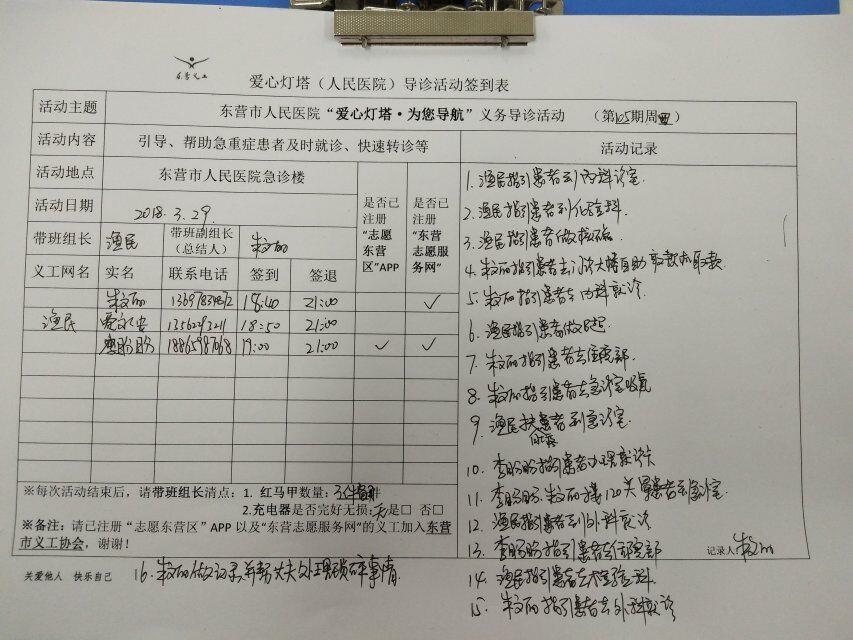 东营义工
爱心灯塔（人民医院）导诊活动签到表
活动主题 东营市人民医院“爱心灯塔·为您导航”义务导诊活动 （第105期周四）
活动内容 引导、帮助急重症患者及时就诊、快速转诊等 活动记录
活动地点 东营市人民医院急诊楼
活动日期 2018.3.29.
是否已注册“志愿东营区”APP
是否已注册“东营志愿服务网”
带班组长 渔民 带班副组长（总结人） 朱文丽
义工网名 实名 联系电话 签到 签退
朱文丽 18:40 21:00 ✓
渔民 18:50 21:00
李盼盼 19:00 21:00 ✓ ✓
1. 渔民指引患者到内科诊室.
2. 渔民指引患者到化验科.
3. 渔民指引患者做核磁
4. 朱文丽指引患者去门诊大厅自助取款机取款.
5. 朱文丽指引患者去内科就诊.
6. 渔民指引患者做B超.
7. 朱文丽指引患者去住院部.
8. 朱文丽指引患者去急诊室吸氧
9. 渔民扶患者到急诊室.
10. 李盼盼指引患者办理就诊卡
11. 李盼盼.朱文丽接120患者到急诊室.
12. 渔民指引患者到外科就诊
13. 李盼盼指引患者去住院部
14. 渔民指引患者去检验科
15. 朱文丽指引患者去外科就诊
记录人 朱文丽
※每次活动结束后，请带班组长清点：1. 红马甲数量：件
2.充电器是否完好无损：无 是□ 否□
※备注：请已注册“志愿东营区”APP以及“东营志愿服务网”的义工加入东营
市义工协会，谢谢！
关爱他人 快乐自己
16. 朱文丽做记录并帮大夫处理琐碎事情.